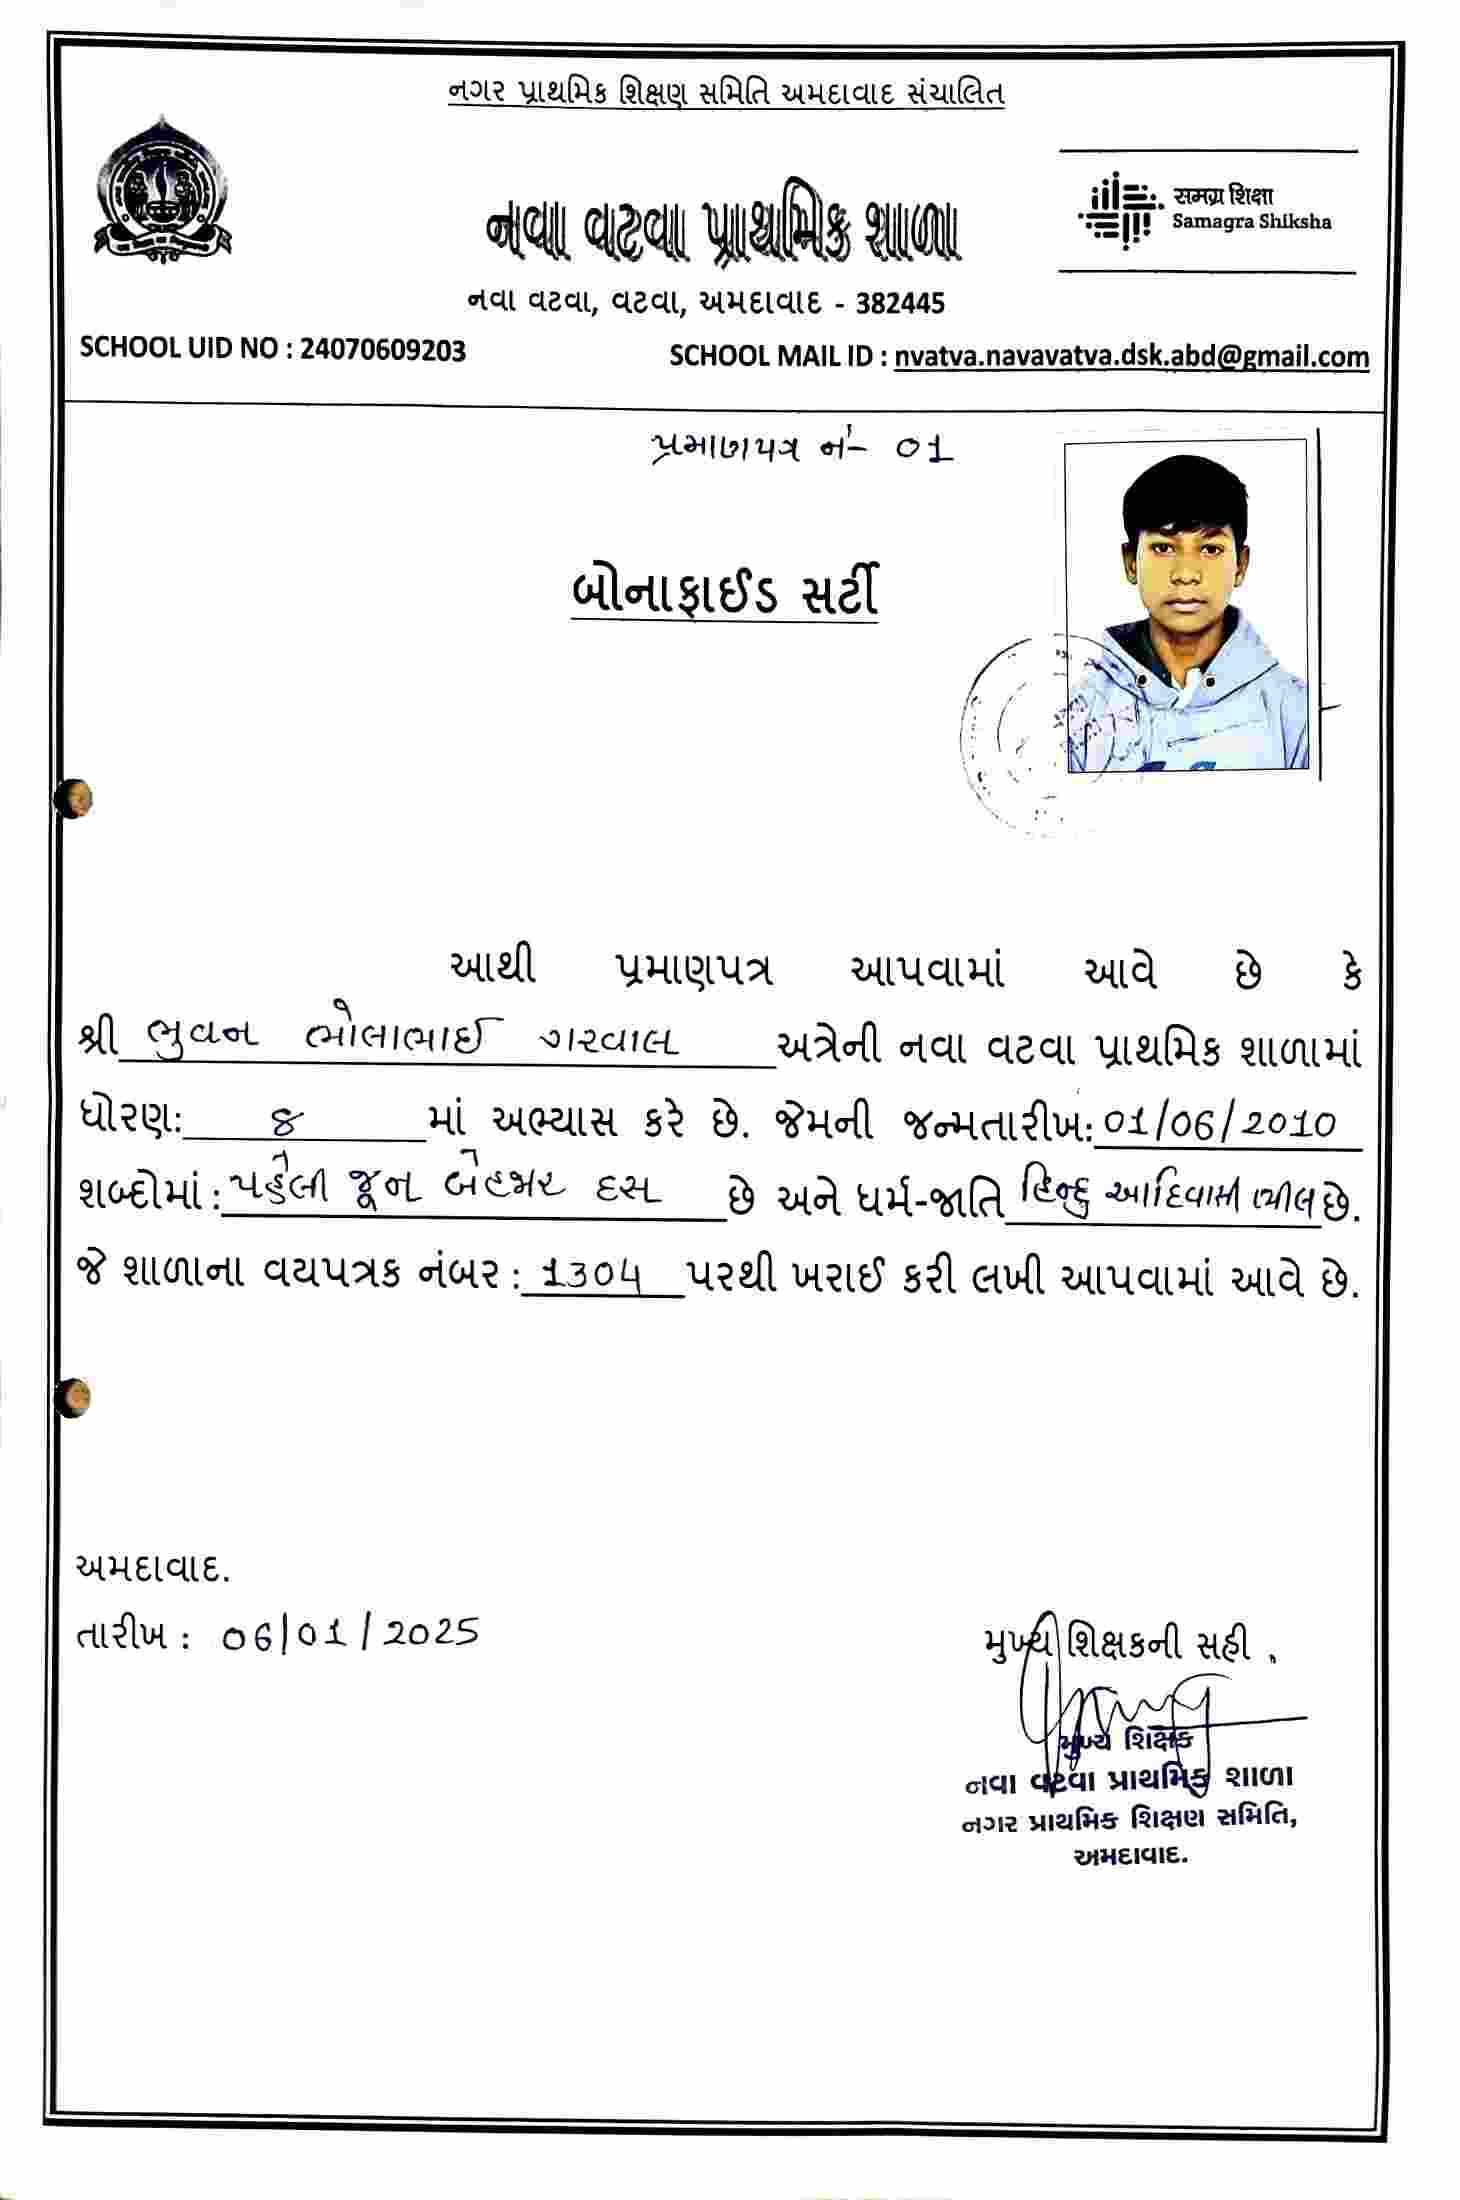 નગર પ્રાથમિક શિક્ષણ સમિતિ અમદાવાદ સંચાલિત
समग्र शिक्षा
Samagra Shiksha
નવા વટવા પ્રાથમિક શાળા
નવા વટવા, વટવા, અમદાવાદ - 382445
SCHOOL UID NO : 24070609203
SCHOOL MAIL ID : nvatva.navavatva.dsk.abd@gmail.com
પ્રમાણપત્ર નં- 01
બોનાફાઈડ સર્ટી
આથી પ્રમાણપત્ર આપવામાં આવે છે કે
શ્રી ભુવન ભોલાભાઈ ગરવાલ અત્રેની નવા વટવા પ્રાથમિક શાળામાં
ધોરણ: ૪ માં અભ્યાસ કરે છે. જેમની જન્મતારીખ: 01/06/2010
શબ્દોમાં : પહેલી જૂન બેહજાર દસ છે અને ધર્મ-જાતિ હિન્દુ આદિવાસી ભીલ છે.
જે શાળાના વયપત્રક નંબર : 1304 પરથી ખરાઈ કરી લખી આપવામાં આવે છે.
અમદાવાદ.
તારીખ : 06/01/2025
મુખ્ય શિક્ષકની સહી .
મુખ્ય શિક્ષક
નવા વટવા પ્રાથમિક શાળા
નગર પ્રાથમિક શિક્ષણ સમિતિ,
અમદાવાદ.